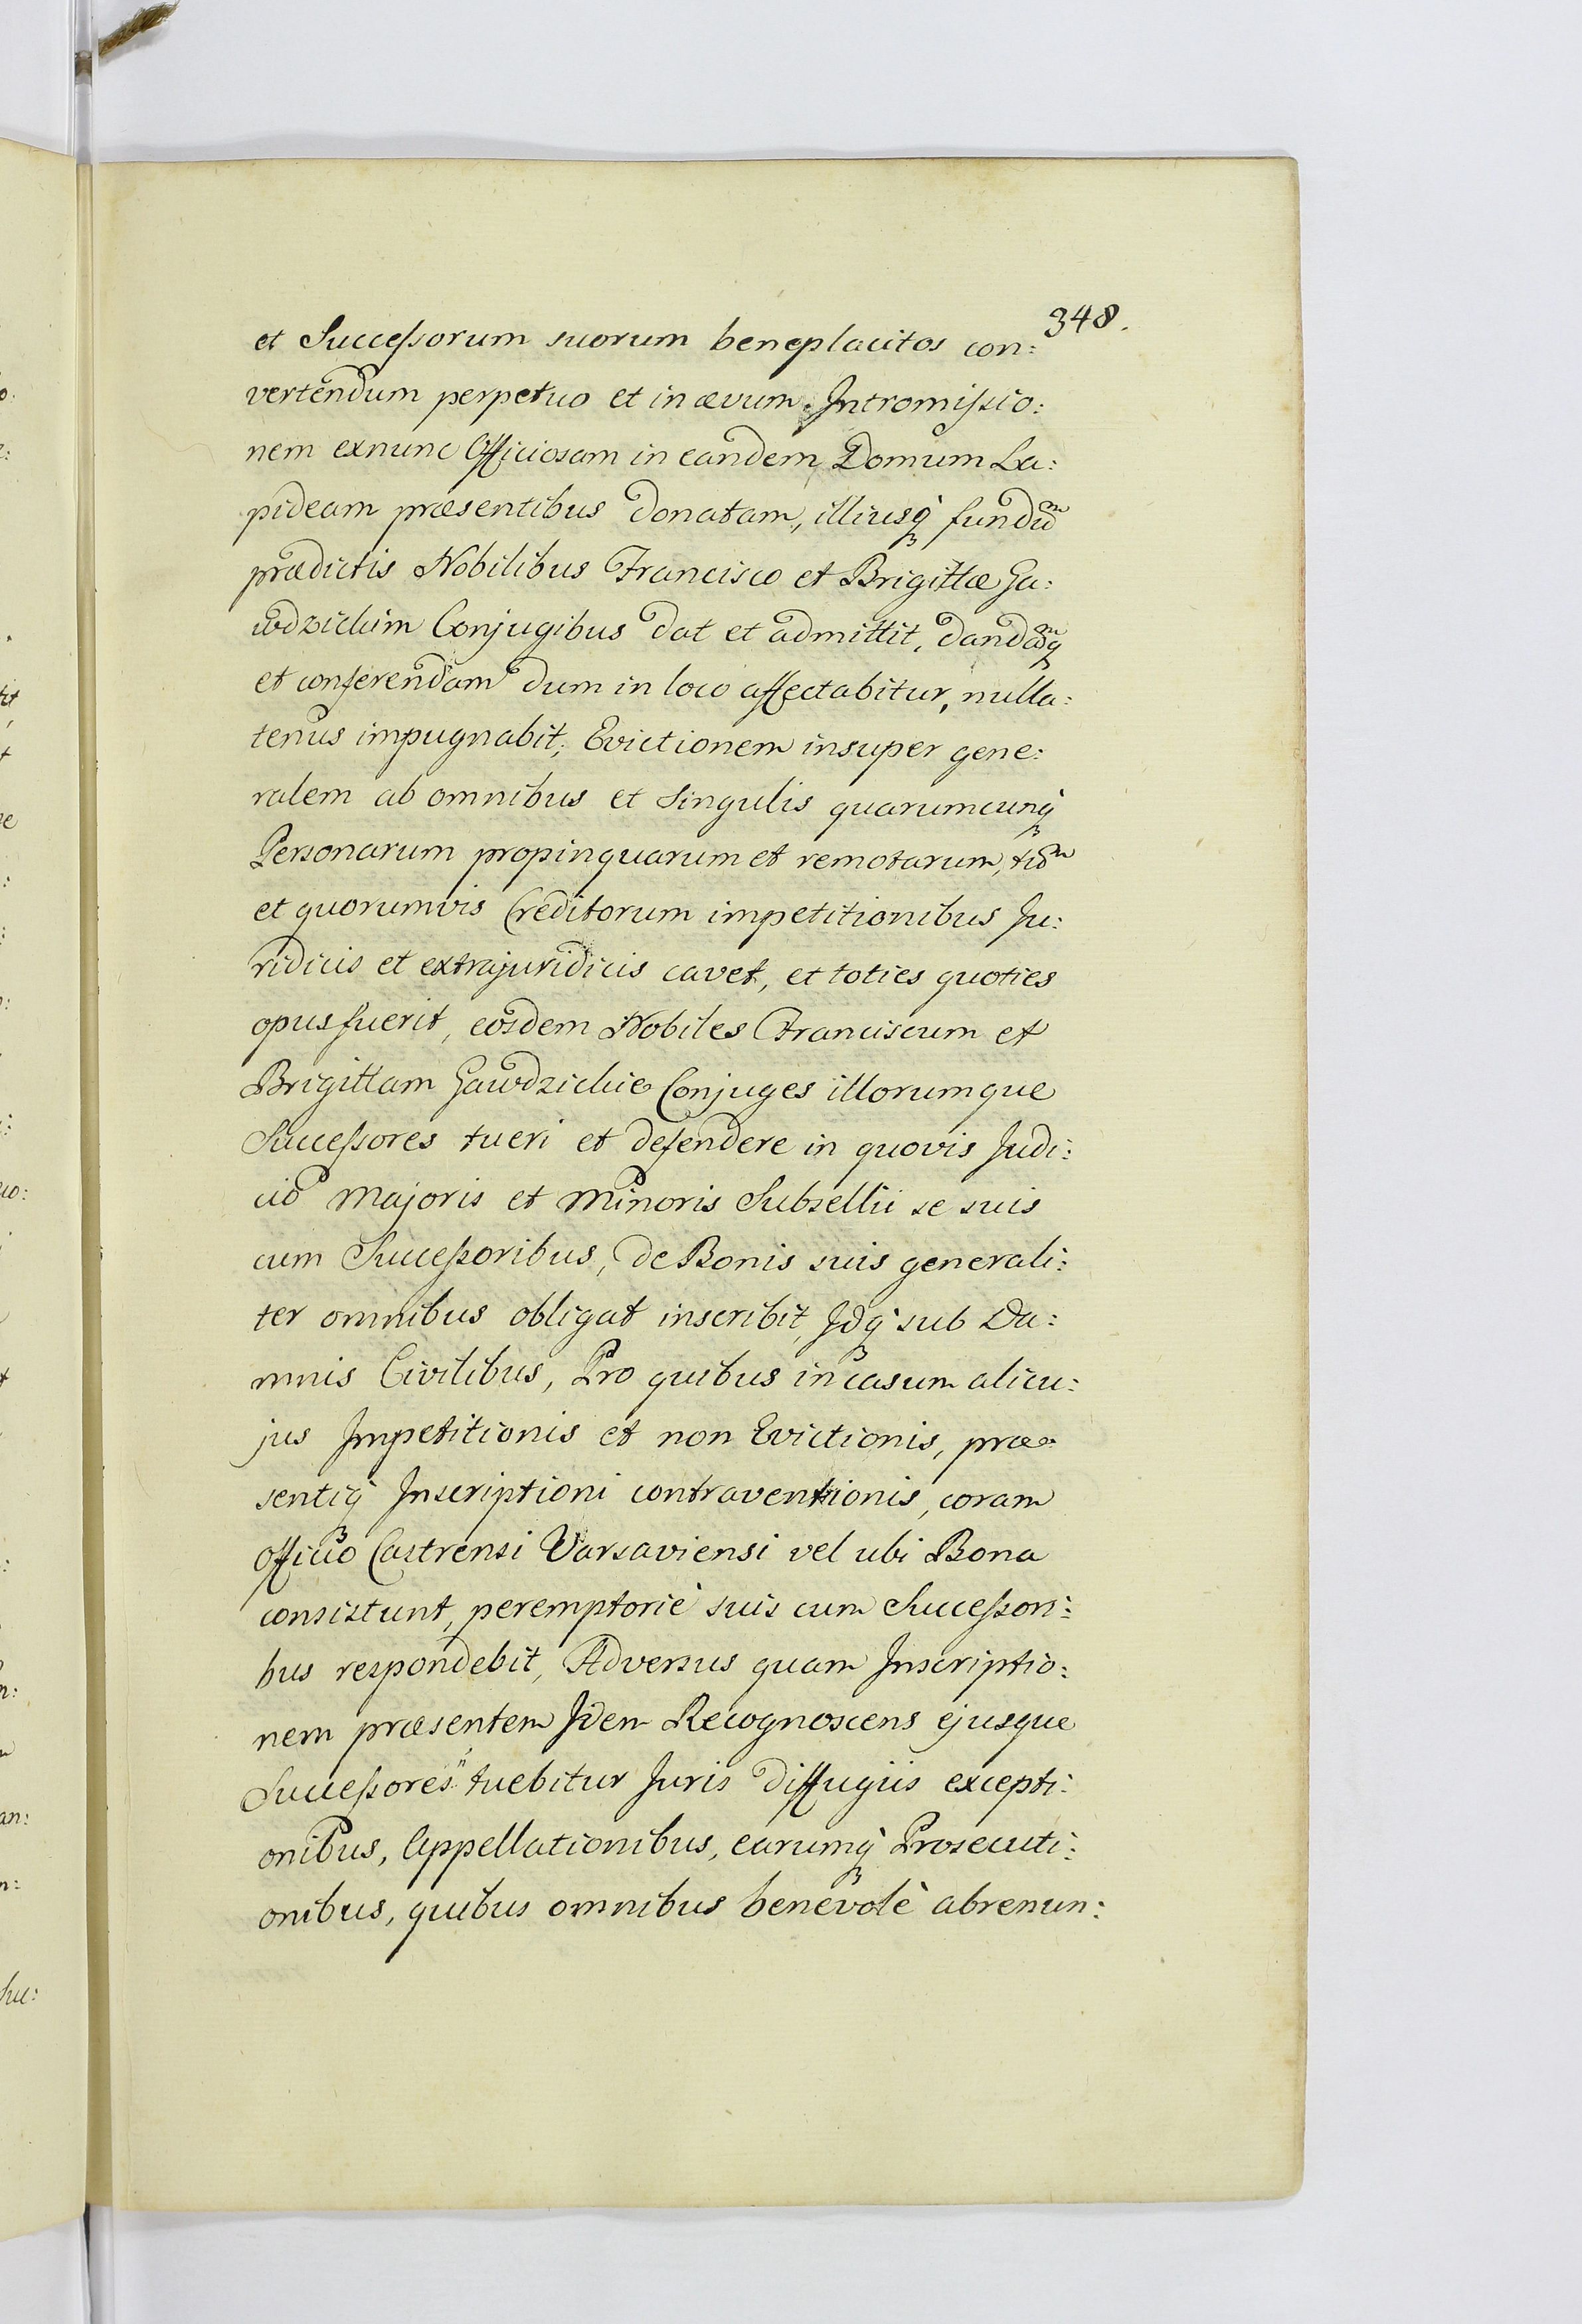 348.
et Succeſsorum suorum beneplacitos con:
vertendum perpetuo et in ævum. Intromiſsio:
nem exnunc Officiosam in eandem Domum La:
pideam præsentibus donatam, illiusq̀ fundũ
prædictis Nobilibus Francisco et Brigittæ Ga:
wdzickim Conjugibus dat et admittit, dandãq̀
et conferendam dum in loco affectabitur, nulla:
tenus impugnabit; Evictionem insuper gene:
ralem ab omnibus et Singulis quarumcunq̀
Personarum propinquarum et remotarum, tũ
et quorumvis Creditorum impetitionibus Ju:
ridicis et extrajuridicis cavet, et toties quoties
opus fuerit, eosdem Nobiles Franciscum et
Brigittam Gawdzickie Conjuges illorumque
Succeſsores tueri et defendere in quovis Judi:
cio Majoris et Minoris Subsellii se suis
cum Succeſsoribus, de Bonis suis generali:
ter omnibus obligat inscribit, Idq̀ sub Da:
mnis Civilibus, Pro quibus in casum alicu:
jus Impetitionis et non Evictionis, præ:
sentiq̀ Inscriptioni contraventionis, coram
Officio Castrensi Varsaviensi vel ubi Bona
consistunt, peremptoriè suis cum Succeſsori:
bus respondebit, Adversus quam Inscriptio:
nem præsentem Idem Recognoscens ejusque
Succeſsores ñ tuebitur Juris diffugiis excepti:
onibus, Appellationibus, earumq̀ Prosecuti:
onibus, quibus omnibus benevolè abrenun: